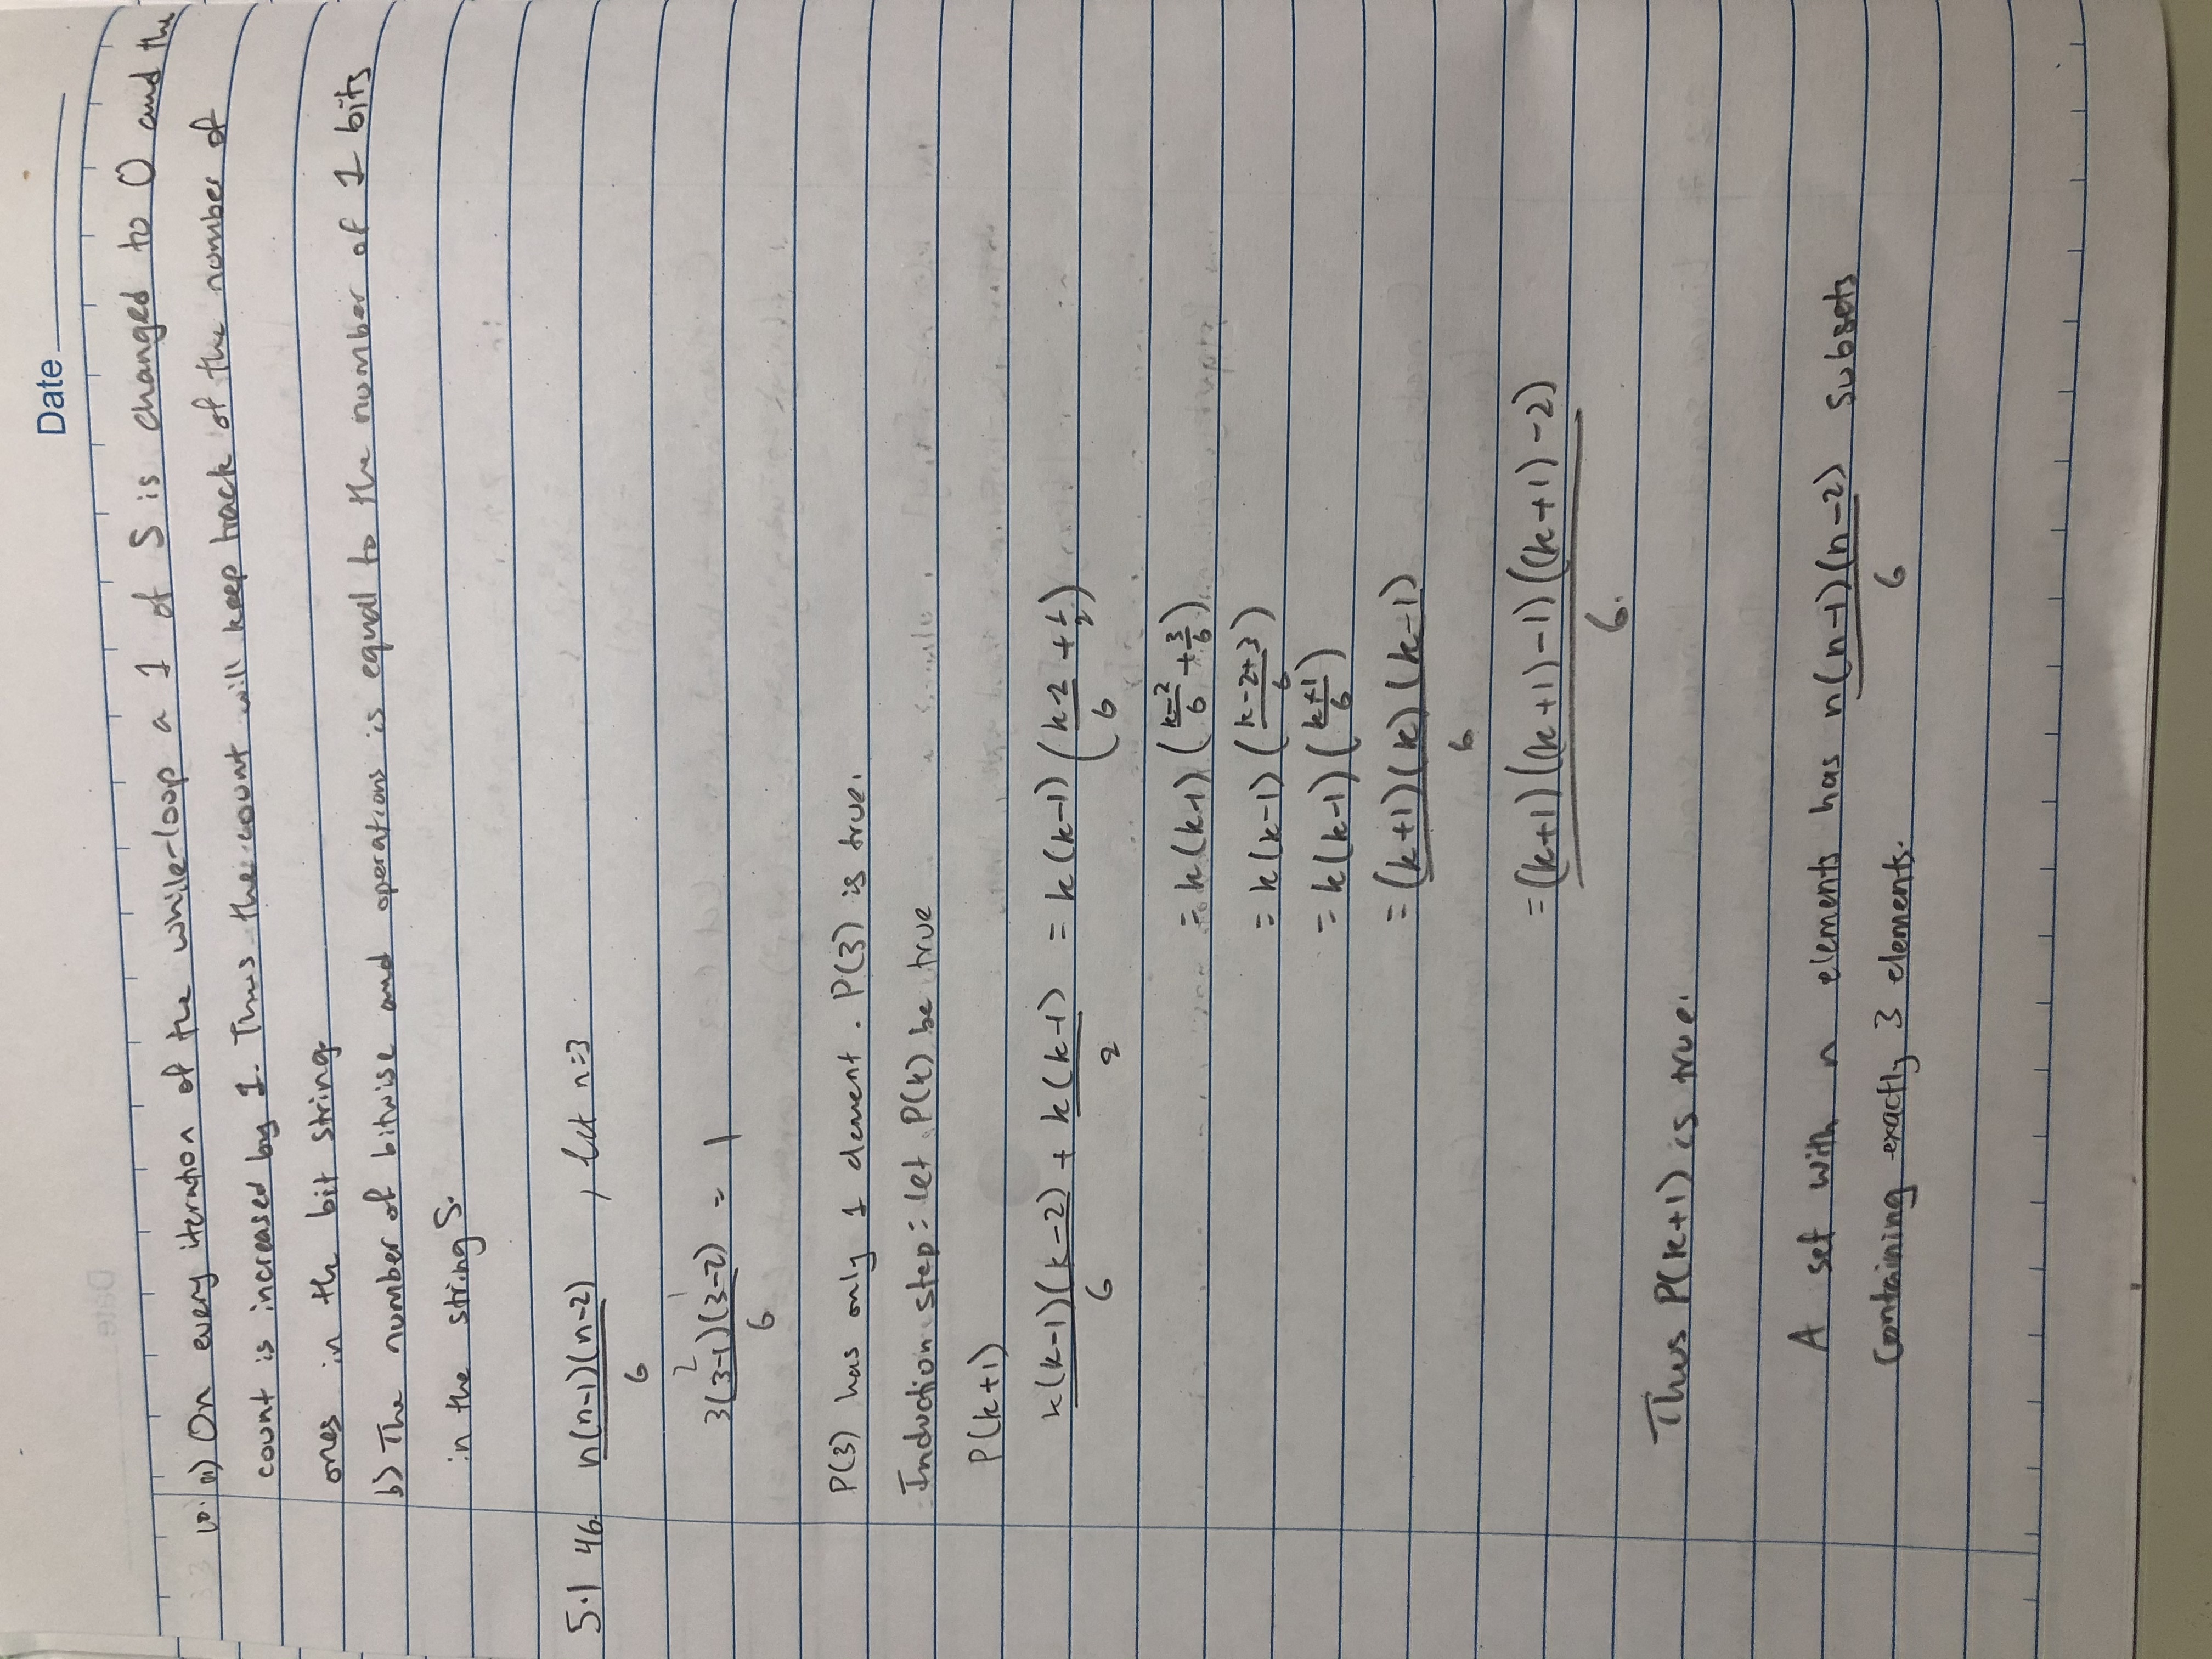 Date
10. a) On every iteration of the while-loop a 1 of S is changed to 0 and the
count is increased by 1. Thus the count will keep track of the number of
ones in the bit string.
b) The number of bitwise and operations is equal to the number of 1 bits
in the string S.
5.1 46. n(n-1)(n-2) / 6 , let n=3
2 1
3(3-1)(3-2) / 6 = 1
P(3) has only 1 element. P(3) is true.
Induction step: let P(k) be true
P(k+1)
k(k-1)(k-2) / 6 + k(k-1) / 2 = k(k-1) (k-2 / 6 + 1/2)
= k(k-1) (k-2 / 6 + 3/6)
= k(k-1) (k-2+3 / 6)
= k(k-1) (k+1 / 6)
= (k+1)(k)(k-1) / 6
= (k+1)((k+1)-1)((k+1)-2) / 6.
Thus P(k+1) is true.
A set with n elements has n(n-1)(n-2) / 6 subsets
containing exactly 3 elements.